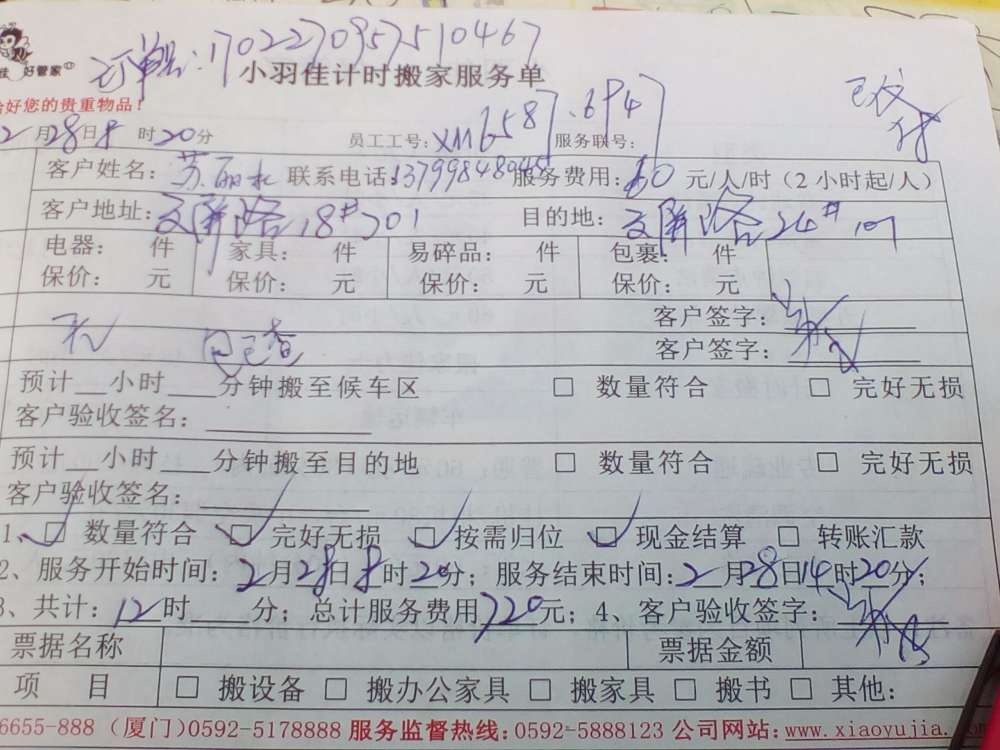 订单号:170227095751046７
佳 好管家
小羽佳计时搬家服务单
恰好您的贵重物品!
2月28日8时20分 员工工号:XM6587.694 服务联号:
客户姓名: 苏丽水 联系电话:13799848945 服务费用:60元/人/时(2小时起/人)
客户地址: 路18#301 目的地: 路24#107
电器: 件 家具: 件 易碎品: 件 包裹: 件
保价: 元 保价: 元 保价: 元 保价: 元
客户签字:
无 已查
客户签字:
预计__小时___分钟搬至候车区 □ 数量符合 □ 完好无损
客户验收签名:
预计__小时___分钟搬至目的地 □ 数量符合 □ 完好无损
客户验收签名:
1、☑ 数量符合 ☑ 完好无损 ☑ 按需归位 ☑ 现金结算 □ 转账汇款
2、服务开始时间:2月28日8时20分;服务结束时间:2月28日14时20分;
3、共计:12时 分;总计服务费用720元;4、客户验收签字:
票据名称 票据金额
项 目 □ 搬设备 □ 搬办公家具 □ 搬家具 □ 搬书 □ 其他:
6655-888 (厦门)0592-5178888 服务监督热线:0592-5888123 公司网站:www.xiaoyujia.com